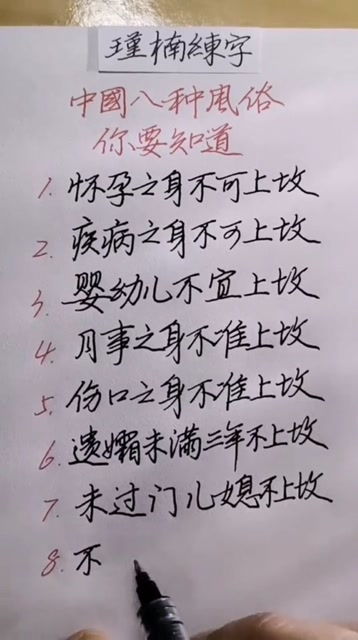 瑾楠練字
中國八种风俗
你要知道
1. 怀孕之身不可上坟
2. 疾病之身不可上坟
3. 婴幼儿不宜上坟
4. 月事之身不准上坟
5. 伤口之身不准上坟
6. 遗孀未满三年不上坟
7. 未过门儿媳不上坟
8. 不